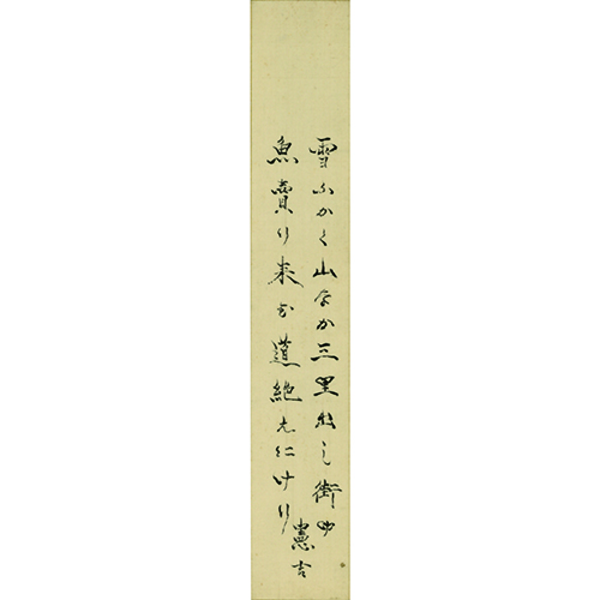 雪ふかく山なか三里し街ゆ
魚賣り来る道絶えにけり
憲吉